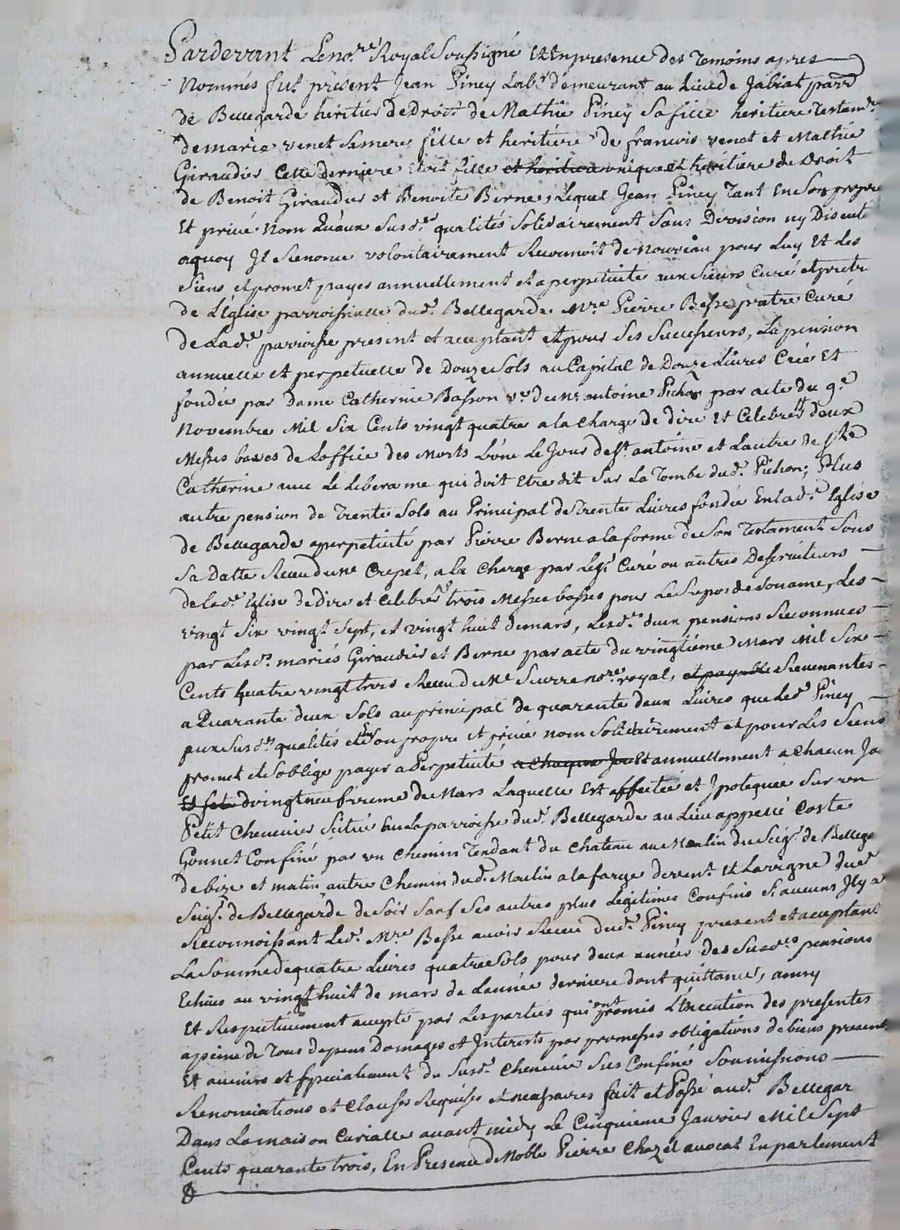 Pardevant Le no.re Royal Soussigné Et En presence des Temoins apres
Nommés fut present Jean Piney Lab.r demeurant au Lieu de Jabiat parr.
de Bellegarde heritier de Droit de Mathie Piney Sa fille heritiere Testam.
de marie venet Sa mere fille et heritiere de francois venet et Mathie
Giraudier Cette derniere Etoit fille et heritiere unique et heritiere de Droit
de Benoit Giraudier et Benoite Berne, Lequel Jean Piney Tant En Son propre
Et privé Nom Qu'aux Susd.es qualités Solidairement Sans Division ny Discut.
aquoy Il Renonce volontairement Reconnoit de Nouveau pour Luy Et Les
Siens et promet payer annuellement et a perpetuite aux Sieurs Curé et pretr
de L'Eglise parroissialle dud. Bellegarde M.re Pierre Besse pretre Curé
de Lad.e parroisse present et acceptant et pour Ses Successeurs, La pension
annuelle et perpetuelle de Douze Sols au Capital de Douze Livres Créé Et
fondée par Dame Catherine Basson v.e de M.e antoine Pichon par acte du 9.e
Novembre Mil Six Cents vingt quatre a la Charge de dire Et Celebrer deux
Messes basses de Loffice des Morts L'une Le Jour de S.t antoine et Lautre de S.te
Catherine avec Le Libera me qui doit Etre dit Sur La Tombe dud. Pichon; Plus
autre pension de Trente Sols au Principal de Trente Livres fondée En lad.e Eglise
de Bellegarde a perpetuité par Pierre Berne a la forme de Son Testament Sous
Sa Datte Receu du M.e Crepet, a la Charge par Les S. Curé ou autres Desserviteurs
de lad.e Eglise de dire et Celebrer trois Messes basses pour Le Repos de Son ame, Les
vingt Six vingt Sept, et vingt huit de mars, Lesd.es deux pensions Reconnues
par Lesd. mariés Giraudier et Berne par acte du vingtième Mars Mil Six
Cents Quatre vingt trois Receu du M.e no.re royal, et payable Revenantes
a Quarante deux Sols au principal de quarante deux Livres que Led. Piney
aux Susd.es qualités et En Son propre et privé nom Solidairement et pour Les Siens
promet et S'oblige payer a Perpetuité a chaque Jou Et annuellement a Chacun Jo
Et fete vingt neuf vieme de Mars Laquelle Est affectée et Ypotequée Sur un
Petit Chenevier Scitué En La parroisse dud. Bellegarde au Lieu appellé Coste
Gonnet Confiné par un Chemin Tendant du Chateau au Moulin du Seig.r de Bellega
de bize et matin autre Chemin dud. Moulin a la farge de vent Et La vigne dud.
Seig.r de Bellegarde de Soir Sauf Ses autres plus Legitimes Confins S'aucuns Il y a
Reconnoissant Led. M.re Besse avoir Receu dud. Piney present et acceptant
La Somme de quatre Livres quatre Sols pour deux année des Susd.es pensions
Echües au vingt huit de mars de L'année derniere dont quittance,
Et Respectivement accepté par Les parties qui ont promis L'Execution des presentes
a peine de Tous depens Domages et Interets par promesses obligations de biens present
Et avenirs et Specialement du Susd. Chenevier Sus Confiné Soumissions
Renonciations et Clauses Requises et necessaires fait et Passé aud. Bellegar
Dans La maison Curialle avant midy Le Cinquieme Janvier Mil Sept
Cents quarante trois, En Presence de Noble Pierre Chazel avocat En parlement